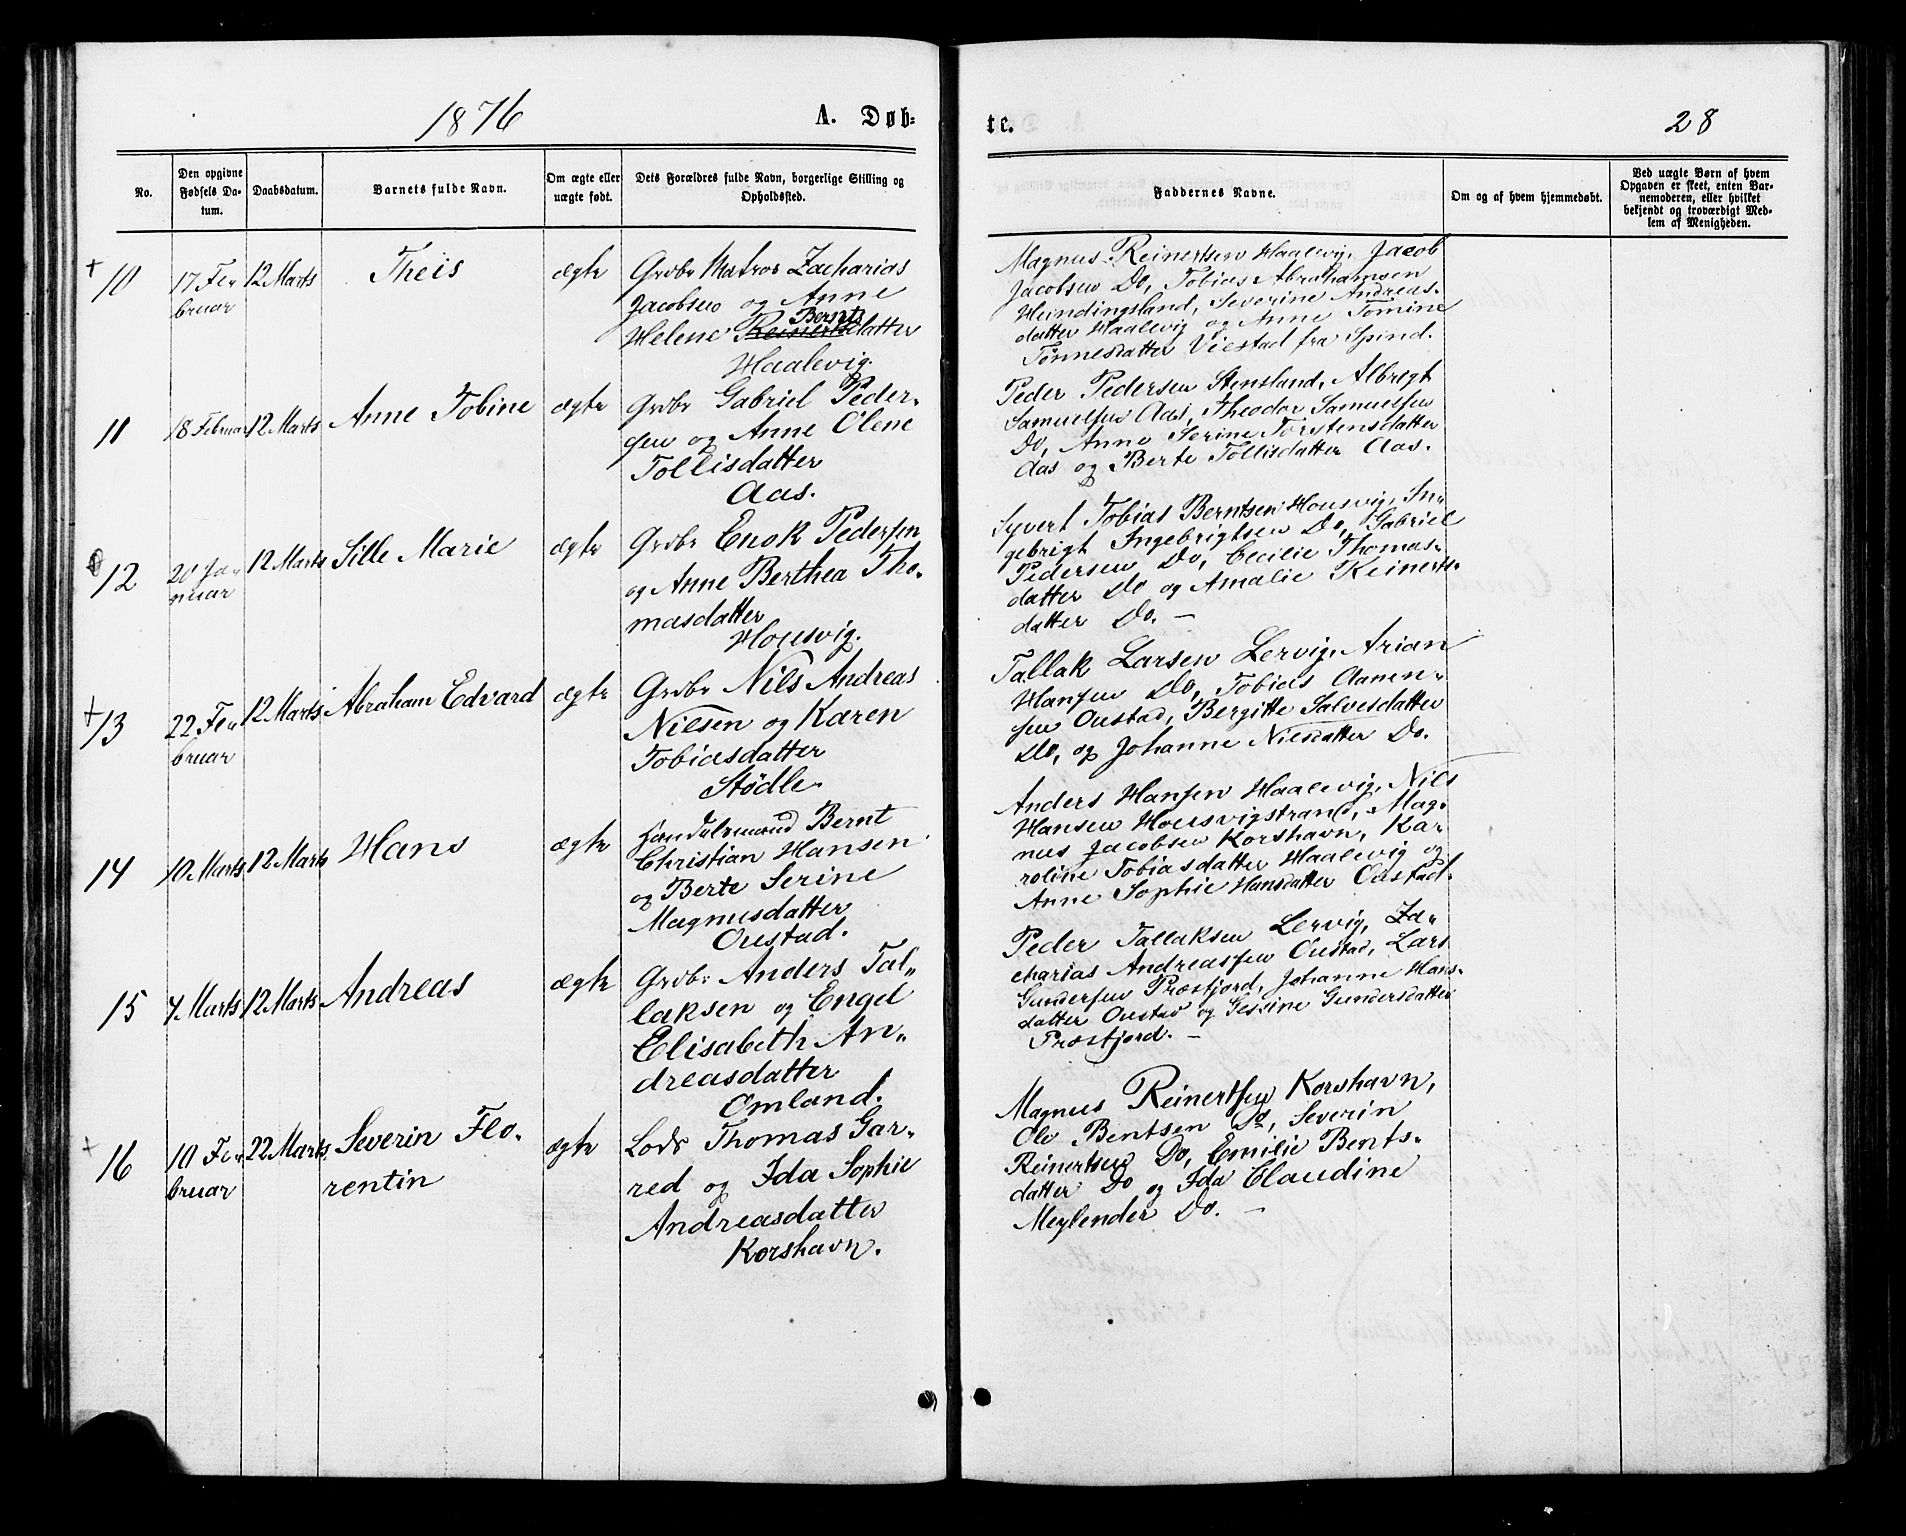 1876
A. Døb=
te.
28
No.
Den opgivne Fødsels Da-tum.
Daabsdatum.
Barnets fulde Navn.
Om ægte eller uægte født.
Dets Forældres fulde Navn, borgerlige Stilling og Opholdssted.
Faddernes Navne.
Om og af hvem hjemmedøbt.
Ved uægte Børn af hvem Opgaven er skeet, enten Bar-nemoderen, eller hvilket bekjendt og troværdigt Med-lem af Menigheden.
+ 10
17 Fe-
bruar
12 Marts
Theis
ægte
Grdbr Matros Zacharias
Jacobsen og Anne
Bernts
Helene Reinertsdatter
Haalevig.
Magnus Reinertsen Haalevig, Jacob
Jacobsen Do, Tobias Abrahamsen
Heindingsland, Severine Andreas-
datter Haalevig og Anne Tomine
Tønnesdatter Viestad fra Spind.
11
18 Februar
12 Marts
Anne Tobine
ægte
Grdbr Gabriel Peder-
sen og Anne Olene
Tollisdatter
Aas.
Peder Pedersen Stensland, Albregt
Samuelsen Aas, Theodor Samuelsen
Do, Anne Serine Torstensdatter
Aas og Berte Tollisdatter Aas.
12
20 Ja-
nuar
12 Marts
Sille Marie
ægte
Grdbr Enok Pedersen
og Anne Berthea Tho-
masdatter
Housvig.
Syvert Tobias Berntsen Housvig, In-
gebrigt Ingebrigtsen Do, Gabriel
Pedersen Do, Cecilie Thomas-
datter Do og Amalie Reinerts-
datter Do. -
+ 13
22 Fe-
bruar
12 Marts
Abraham Edvard
ægte
Grdbr Nils Andreas
Nilsen og Karen
Tobiasdatter
Stødle.
Tallak Larsen Lervig, Arian
Hansen Do, Tobias Aanen-
sen Oustad, Bergitte Salvesdatter
Do, og Johanne Nilsdatter Do.
14
10 Marts
12 Marts
Hans
ægte
Handelsmand Bernt
Christian Hansen
og Berte Serine
Magnusdatter
Oustad.
Anders Hansen Haalevig, Nils
Hansen Housvigstrand, Mag-
nus Jacobsen Korshavn, Ka-
roline Tobiasdatter Haalevig og
Anne Sophie Hansdatter Oustad.
15
7 Marts
12 Marts
Andreas
ægte
Grdbr Anders Tal-
laksen og Engel
Elisabeth An-
dreasdatter
Omland.
Peder Tallaksen Lervig, Za-
charias Andreassen Oustad, Lars
Gundersen Præstjord, Johanne Hans-
datter Oustad og Gesine Gundersdatter
Præstjord. -
+ 16
10 Fe-
bruar
22 Marts
Severin Flo-
rentin
ægte
Lods Thomas Gar-
red og Ida Sophie
Andreasdatter
Korshavn.
Magnus Reinertsen Korshavn,
Ole Bentsen Do, Severin
Reinertsen Do, Emilie Bents-
datter Do og Ida Claudine
Meylender Do. -